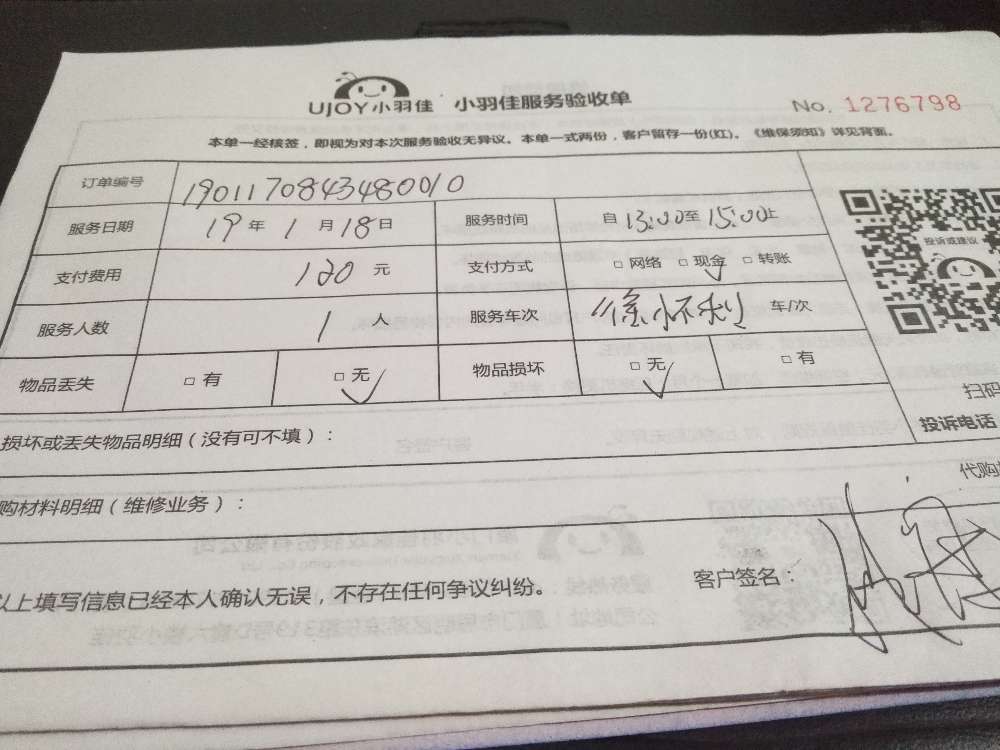 UJOY小羽佳 小羽佳服务验收单 No. 1276798
本单一经核签，即视为对本次服务验收无异议。本单一式两份，客户留存一份(红)。《维保须知》详见背面。
订单编号 19011708434800010
服务日期 19年1月18日 服务时间 自13:00至15:00止
支付费用 120元 支付方式 □网络 □现金 □转账
服务人数 1人 服务车次 徐怀利 车/次
物品丢失 □有 □无 物品损坏 □无 □有
投诉或建议
扫码
投诉电话
损坏或丢失物品明细（没有可不填）：
代购
购材料明细（维修业务）：
以上填写信息已经本人确认无误，不存在任何争议纠纷。 客户签名：